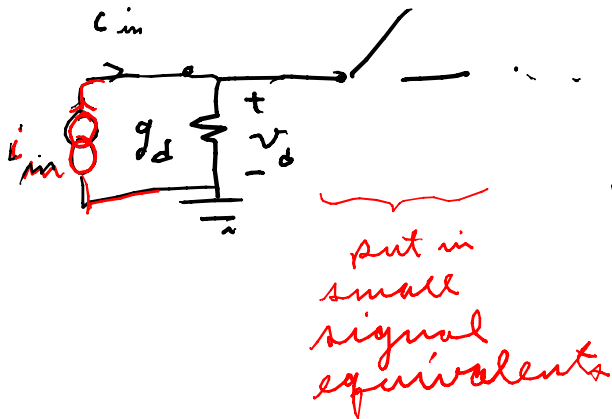 i in
i in
g d
+
v d
-
put in
small
signal
equivalents